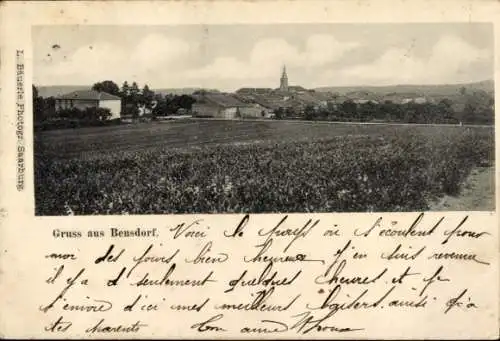 L. Bäuerle Photogr. Saarburg.
Gruss aus Bensdorf. Voici le pays où s'écoulent pour
moi des jours bien heureux j'en suis revenue
il y a seulement quelques heures et
t'envoie d'ici mes meilleurs ainsi qu'à
tes parents Ton amie